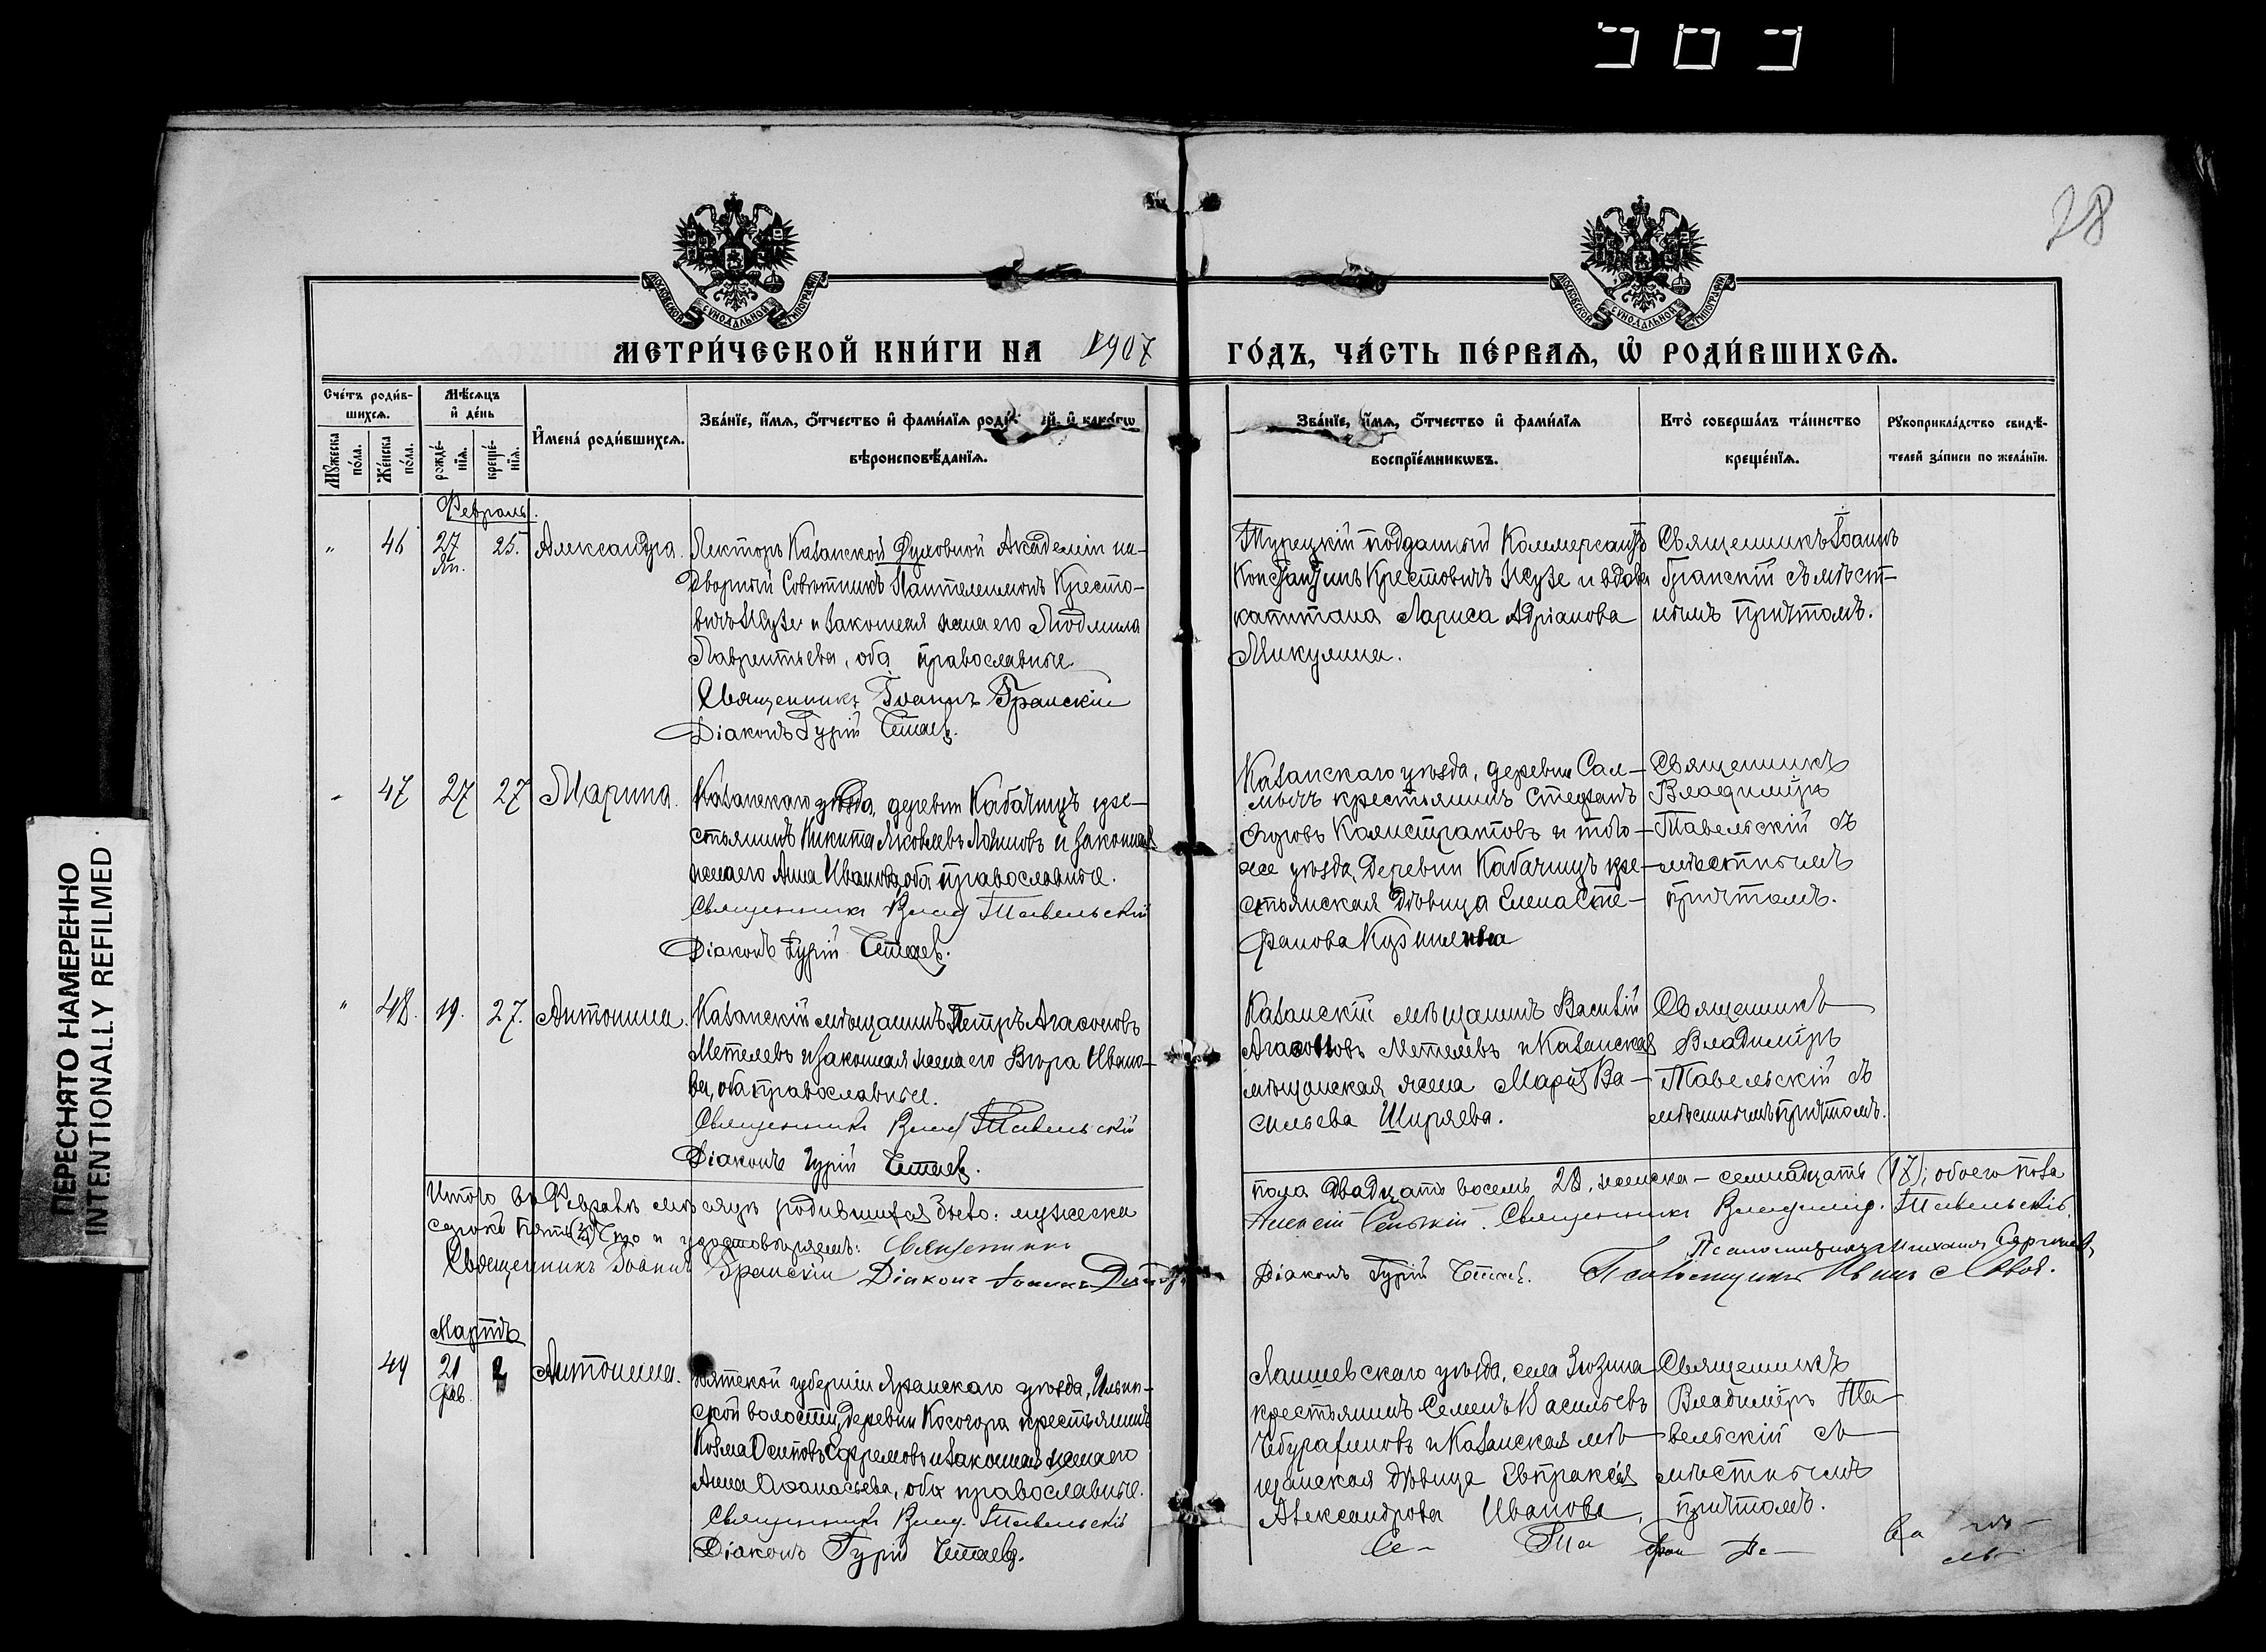 28
МОСКОВСКОЙ СУНОДАЛЬНОЙ ТИПОГРАФІИ
МОСКОВСКОЙ СУНОДАЛЬНОЙ ТИПОГРАФІИ
МЕТРИ́ЧЕСКОЙ КНИ́ГИ НА 1907 ГО́ДЪ, ЧА́СТЬ ПЕ́РВАѦ, Ѡ҆ РОДИ́ВШИХСѦ.
Сче́тъ роди́в-
шихсѧ.
Мꙋ́жеска
по́ла.
Же́нска
по́ла.
Мѣ́сѧцъ
и҆ де́нь
рожде́-
нїѧ.
креще́-
нїѧ.
И҆мена̀ роди́вшихсѧ.
Зва́нїе, и҆́мѧ, ѻ҆́тчество и҆ фами́лїѧ роди́ ей, и҆ како́гѡ
вѣроисповѣ́данїѧ.
Зва́нїе, и҆́мѧ, ѻ҆́тчество и҆ фами́лїѧ
воспрїе́мникѡвъ.
Кто̀ соверша́лъ та́инство
креще́нїѧ.
Рꙋкоприкла́дство свидѣ́-
телей за́писи по жела́нїи.
Февраль.
" 46 27 Ян. 25. Александра.
Лекторъ Казанской Духовной Академіи на-
дворный Совѣтникъ Пантелеимонъ Кресто-
вичъ Жузе и законная жена его Людмила
Лаврентьева, оба православные
Священникъ Іоаннъ Гранскій
Діаконъ Гурій
Турецкій подданный Коммерсантъ
Константинъ Крестовичъ Жузе и вдова
капитана Лариса Адріанова
Микулина.
Священникъ Іоаннъ
Гранскій съ мѣст-
нымъ причтомъ.
" 47 27 27 Марина.
Казанскаго уѣзда, деревни Кабачищъ кре-
стьянинъ Никита Яковлевъ и законная
жена его Анна Иванова, оба православные.
Священникъ Влад Тавельскій
Діаконъ Гурій
Казанскаго уѣзда, деревни Сал-
мычъ крестьянинъ Стефанъ
Калистратовъ и того-
же уѣзда, деревни Кабачищъ кре-
стьянская дѣвица Елена Сте-
фанова
Священникъ
Владиміръ
Тавельскій съ
мѣстнымъ
причтомъ.
" 48. 19. 27. Антонина.
Казанскій мѣщанинъ Петръ Агафоновъ
Метелевъ и законная жена его Вѣра Ивано-
ва, оба православные.
Священникъ Влад Тавельскій
Діаконъ Гурій
Казанскій мѣщанинъ Василій
Агафоновъ Метелевъ и Казанская
мѣщанская жена Марія Ва-
сильева Ширяева.
Священникъ
Владиміръ
Тавельскій съ
мѣстнымъ причтомъ.
Итого въ Февралѣ мѣсяцѣ родившихся было: мужеска
пола двадцать восемь 28, женска – семнадцать (17); обоего пола
сорокъ пять (45) Что и удостовѣряемъ: Священникъ
Священникъ Владимір. Тавельскій.
Псаломщикъ Михаилъ
Священникъ Іоаннъ Гранскій Діаконъ Іоаннъ
Діаконъ Гурій Псаломщикъ Иванъ
Мартъ
49 21 Фев. 2 Антонина.
Вятской губерніи Яранскаго уѣзда, Ильин-
ской волости, деревни Косогора крестьянинъ
Козма Осиповъ Ефремовъ и законная жена его
Анна Афанасьева, оба православные.
Священникъ Влад. Тавельскій
Діаконъ Гурій
Лаишевскаго уѣзда, села Зюзина
крестьянинъ Семенъ Васильевъ
и Казанская мѣ-
щанская дѣвица Евпраксія
Александрова Иванова.
Священникъ
Владиміръ Та-
вельскій съ
мѣстнымъ
причтомъ.
ПЕРЕСНЯТО НАМЕРЕННО
INTENTIONALLY REFILMED